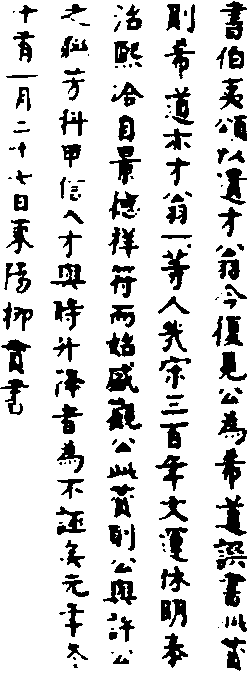 書伯夷頌以遺才翁今復見公為希道譔書此贊
則希道亦才翁一等人矣宋三百年文運休明泰
治熙洽自景德祥符而始盛觀公此贊則公與許公
之聯芳科甲信人才與時升降者為不誣矣元年冬
十有一月二十七日東陽柳貫書